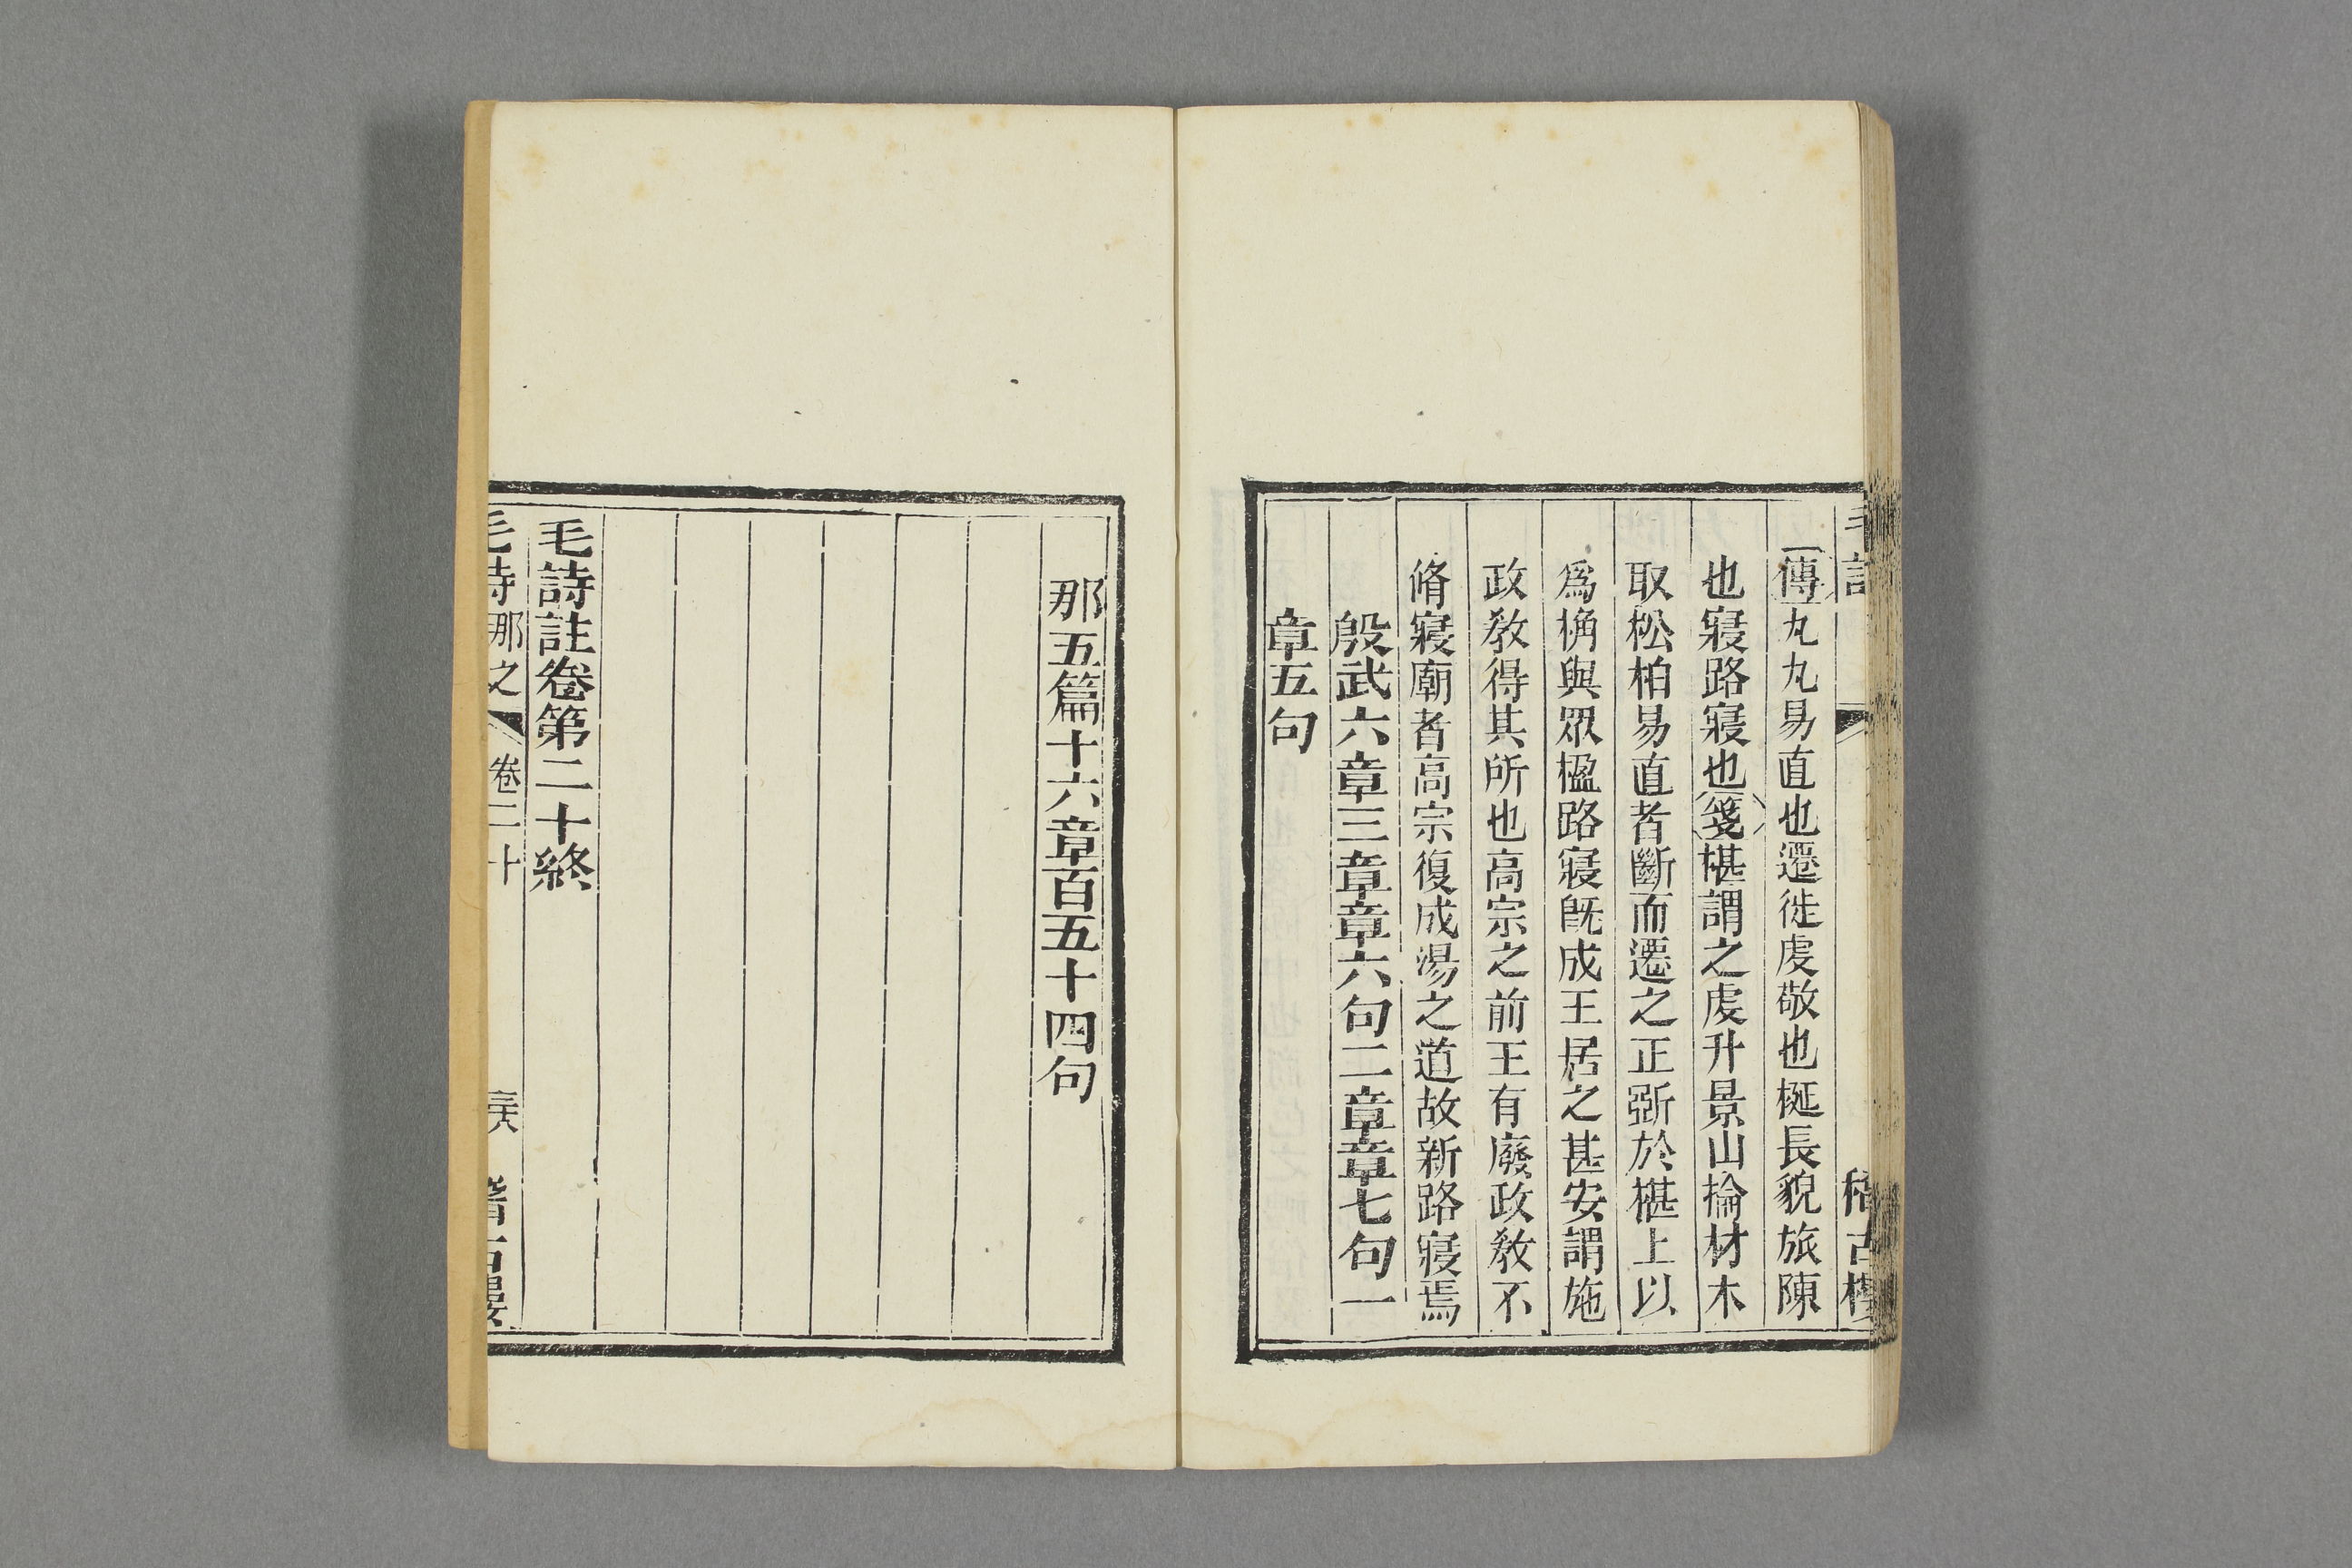 毛詩
稽古樓
傳丸丸易直也遷徙虔敬也梴長貌旅陳
也寢路寢也箋椹謂之虔升景山掄材木
取松柏易直者斷而遷之正斲於椹上以
爲桷與眾楹路寢旣成王居之甚安謂施
政敎得其所也高宗之前王有廢政敎不
脩寢廟者高宗復成湯之道故新路寢焉
殷武六章三章章六句二章章七句一
章五句
那五篇十六章百五十四句
毛詩註卷第二十終
毛詩那之
卷二十
稽古樓